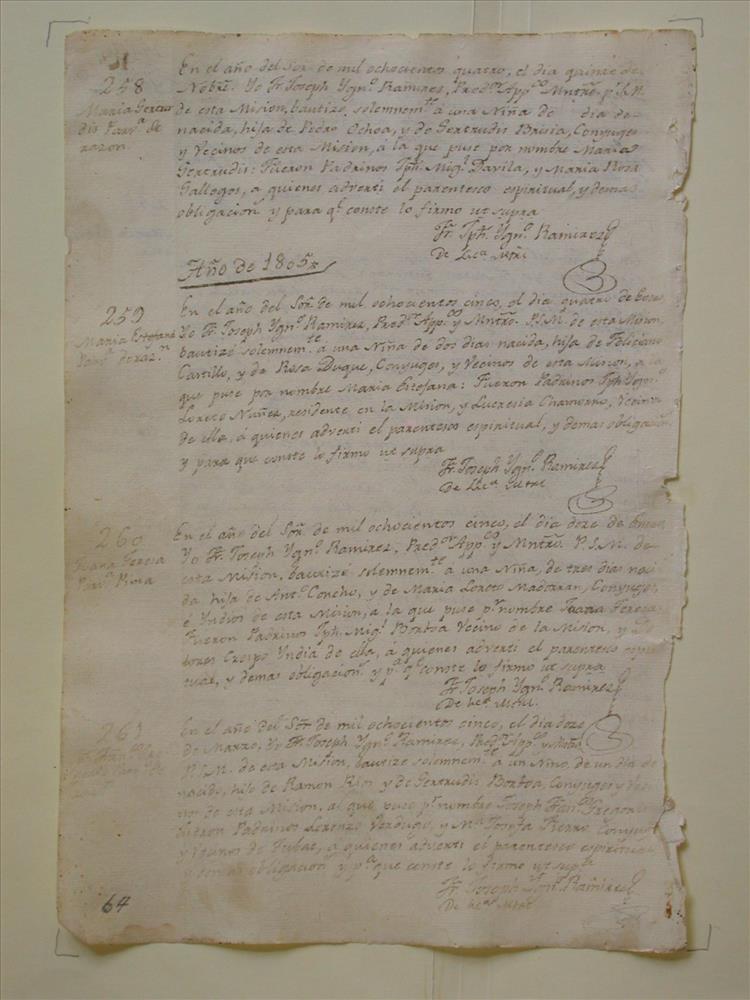 258
Maria Gertru
dis Parv.ª de
razon.
En el año del Sor. de mil ochocientos quatro, el dia quinze de
Nobre. Yo Fr. Joseph Ygn.º Ramirez, Pred.or App.co y Mntro. P.S.M.
de esta Mision, bautizé solemnem.te á una Niña de dia de
nacida, hija de Pedro Ochoa, y de Gertrudis Brisia, Conyuges
y Vecinos de esta Mision, á la que puse por nombre Maria
Gertrudis: Fueron Padrinos Jph. Mig.l Davila, y Maria Rosa
Gallegos, a quienes adverti el parentesco espiritual, y demas
obligacion.s y para q.e conste lo firmo ut supra
Fr. Jph. Ygn.º Ramirez
De
Año de 1805
259
Maria Estefana
Parv.ª de raz.n
En el año del Sor. de mil ochocientos cinco, el dia quatro de Enero,
Yo Fr. Joseph Ygn.º Ramirez, Pred.or App.co y Mntro. P.S.M. de esta Mision,
bautizé solemnem.te á una Niña de dos dias nacida, hija de Feliciano
Castillo, y de Rosa Duque, Conyuges, y Vecinos de esta Mision, a la
que puse por nombre Maria Estefana: Fueron Padrinos Jph. Ygn.º
Loreto Nuñez, residente en la Mision, y Lucresia Chamorro, Vecina
de ella, á quienes adverti el parentesco espiritual, y demas obligacion.s
y para que conste lo firmo ut supra
Fr. Joseph Ygn.º Ramirez
De
260
Juana Teresa
Parv.ª
En el año del Sor. de mil ochocientos cinco, el dia doze de Enero,
Yo Fr. Joseph Ygn.º Ramirez, Pred.or App.co y Mntro. P.S.M. de
esta Mision, bautizé solemnem.te á una Niña, de tres dias naci
da hija de Ant.º Concho, y de Maria Loreto Madorran, Conyuges,
é Yndios de esta Mision, a la que puse p.r nombre Juana Teresa:
Fueron Padrinos Jph. Mig.l Bortoa Vecino de la Mision, y Do
lores Crespo Yndia de ella, á quienes adverti el parentesco espiri
tual, y demas obligacion.s y p.a q.e conste lo firmo ut supra
Fr. Joseph Ygn.º Ramirez
De
261
En el año del Sor. de mil ochocientos cinco, el dia doze
de Marzo, Yo Fr. Joseph Ygn.º Ramirez, Pred.or App.co y Mntro.
P.S.M. de esta Mision, bautizé solemnem.te á un Niño, de un dia de
nacido, hijo de Ramon Rios y de Gertrudis Bortoa, Conyuges y Veci
nos de esta Mision, al que puse p.r nombre Joseph Fran.co Gregorio
Fueron Padrinos Lorenzo Verdugo, y M.ª Josefa Fierro, Conyuges
y Vecinos de Tubac, a quienes adverti el parentesco espiritual
y demas obligacion.s y p.a que conste lo firmo ut supra
Fr. Joseph Ygn.º Ramirez
De
64